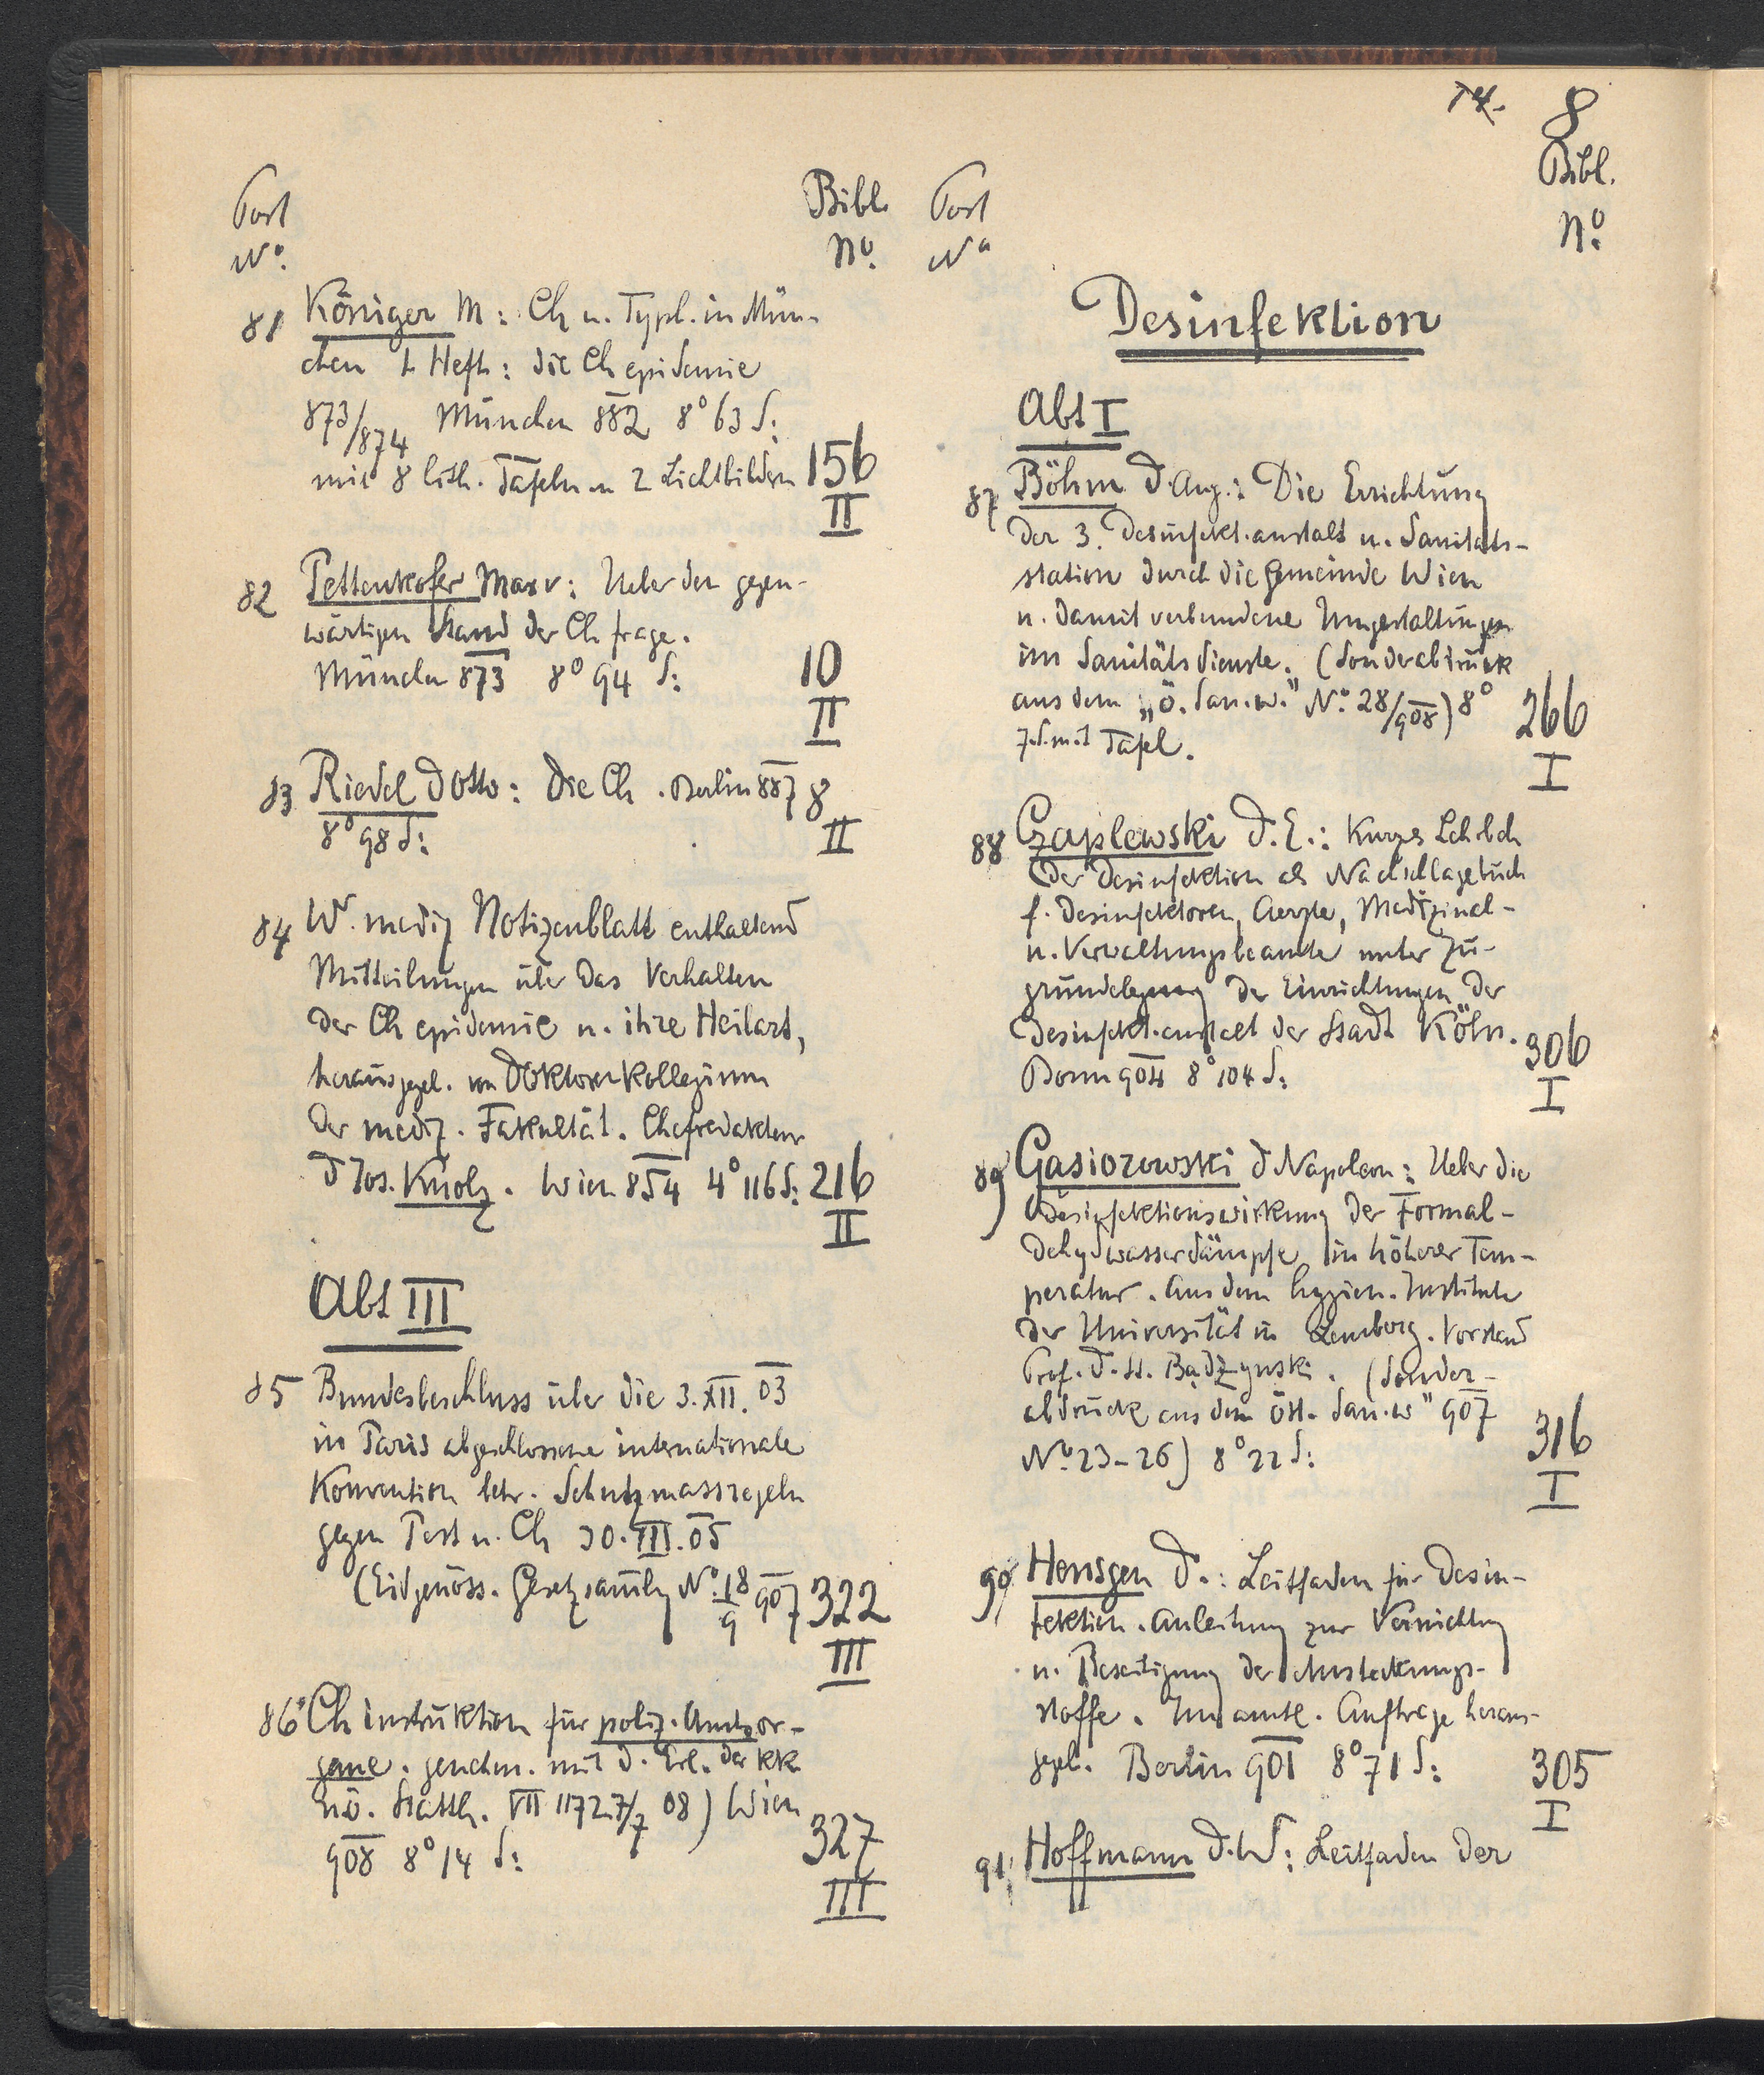 8
Post
No.
Bibl.
No.
81 Königer M: Ch u. Typh. in Mün-
chen 1. Heft: die Ch epidemie
873/874 München 882 8° 63 S:
mit 8 lith. Tafeln u 2 Lichtbildern 156
II
82 Pettenkofer Max v: Ueber den gegen-
wärtigen Stand der Ch frage.
München 873 8° 94 S: 10
II
83 Riedel D Otto: Die Ch. Berlin 887 8
8° 98 S: II
84 Wr. mediz Notizenblatt enthaltend
Mitteilungen über das Verhalten
der Ch epidemie u. ihre Heilart,
herausgegeb. von Doktorenkollegium
der mediz. Fakultät. Chefredakteur
D Jos. Knolz. Wien 854 4° 116 S: 216
II
Abt III
85 Bundesbeschluss über die 3. XII. 03
in Paris abgeschlossene internationale
Konvention betr. Schutzmassregeln
gegen Pest u. Ch 30. III. 05
(Eidgenöss. Gesetzsammlg No. 18/9 907 322
III
86 Ch instruktion für poliz. Amtsor-
gane. genehm. mit d. Erl. der kk
nö. Statth. VII 1172 7/7 08) Wien
908 8° 14 S: 327
III
Post
No
Bibl.
No.
Desinfektion
Abt I
87 Böhm D. Aug.: Die Errichtung
der 3. Desinfekt. anstalt u. Sanitäts-
station durch die Gemeinde Wien
u. damit verbundene Umgestaltungen
im Sanitätsdienste. (Sonderabdruck
aus dem „ö. San. w." No. 28/908) 8° 266
7 S. mit Tafel. I
88 Czaplewski D. E.: Kurzes Lehrbch
der Desinfektion als Nachschlagebuch
f. Desinfektoren, Aerzte, Medizinal-
u. Verwaltungsbeamte unter Zu-
grundelegung der Einrichtungen der
Desinfekt. anstalt der Stadt Köln. 306
Bonn 904 8° 104 S: I
89 Gasiorowski D Napoleon: Ueber die
Desinfektionswirkung der Formal-
dehydwasserdämpfe in höherer Tem-
peratur. Aus dem hygien. Institute
der Universität in Lemberg. Vorstand
Prof. D. St. Bądzynski. (Sonder-
abdruck aus dem öst. San. w" 907 316
No. 23-26) 8° 22 S: I
90 Hensgen D.: Leitfaden für Desin-
fektion. Anleitung zur Vernichtung
u. Beseitigung der Ansteckungs-
stoffe. Im amtl. Auftrage heraus-
gegeb. Berlin 901 8° 71 S: 305
I
91 Hoffmann D. W: Leitfaden der